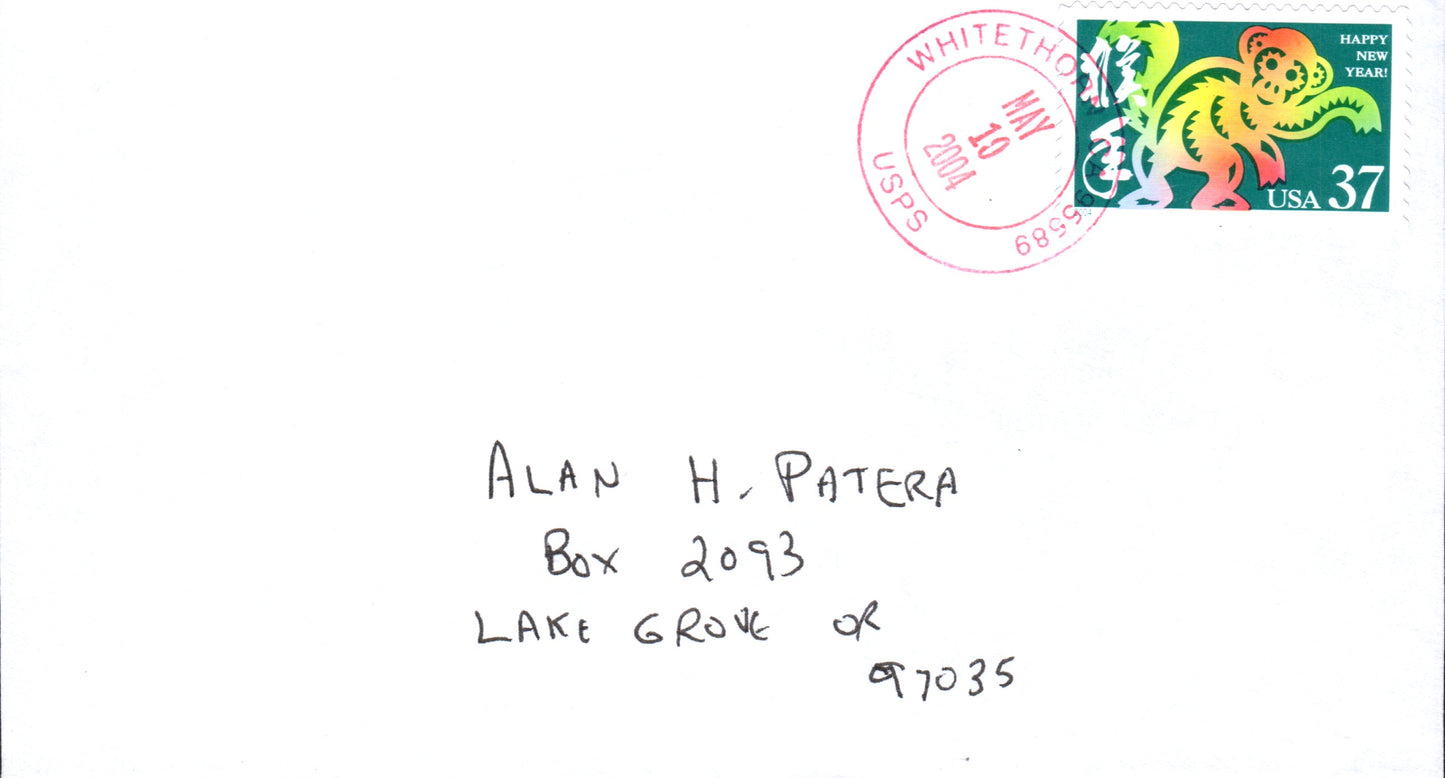 WHITETHORN CA 95589
USPS
MAY
19
2004
猴年
HAPPY
NEW
YEAR!
USA 37
2004
ALAN H. PATERA
BOX 2093
LAKE GROVE OR
97035